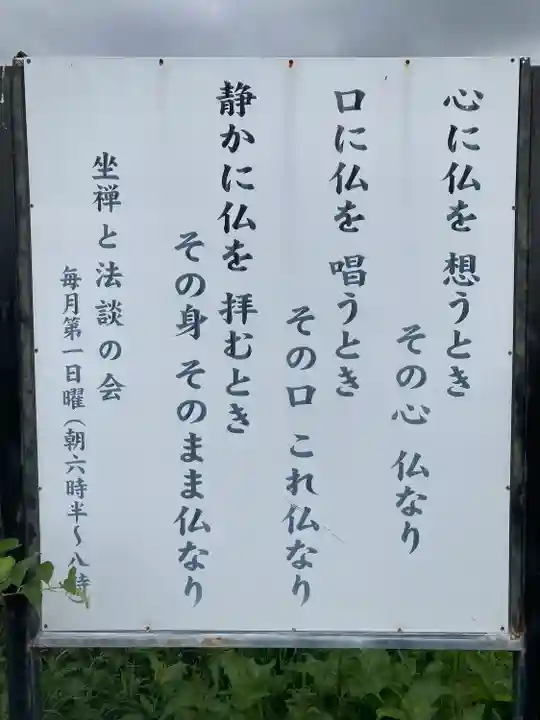 心に仏を 想うとき
その心 仏なり
口に仏を 唱うとき
その口 これ仏なり
静かに仏を 拝むとき
その身 そのまま仏なり
坐禅と法談の会
毎月第一日曜(朝六時半〜八時